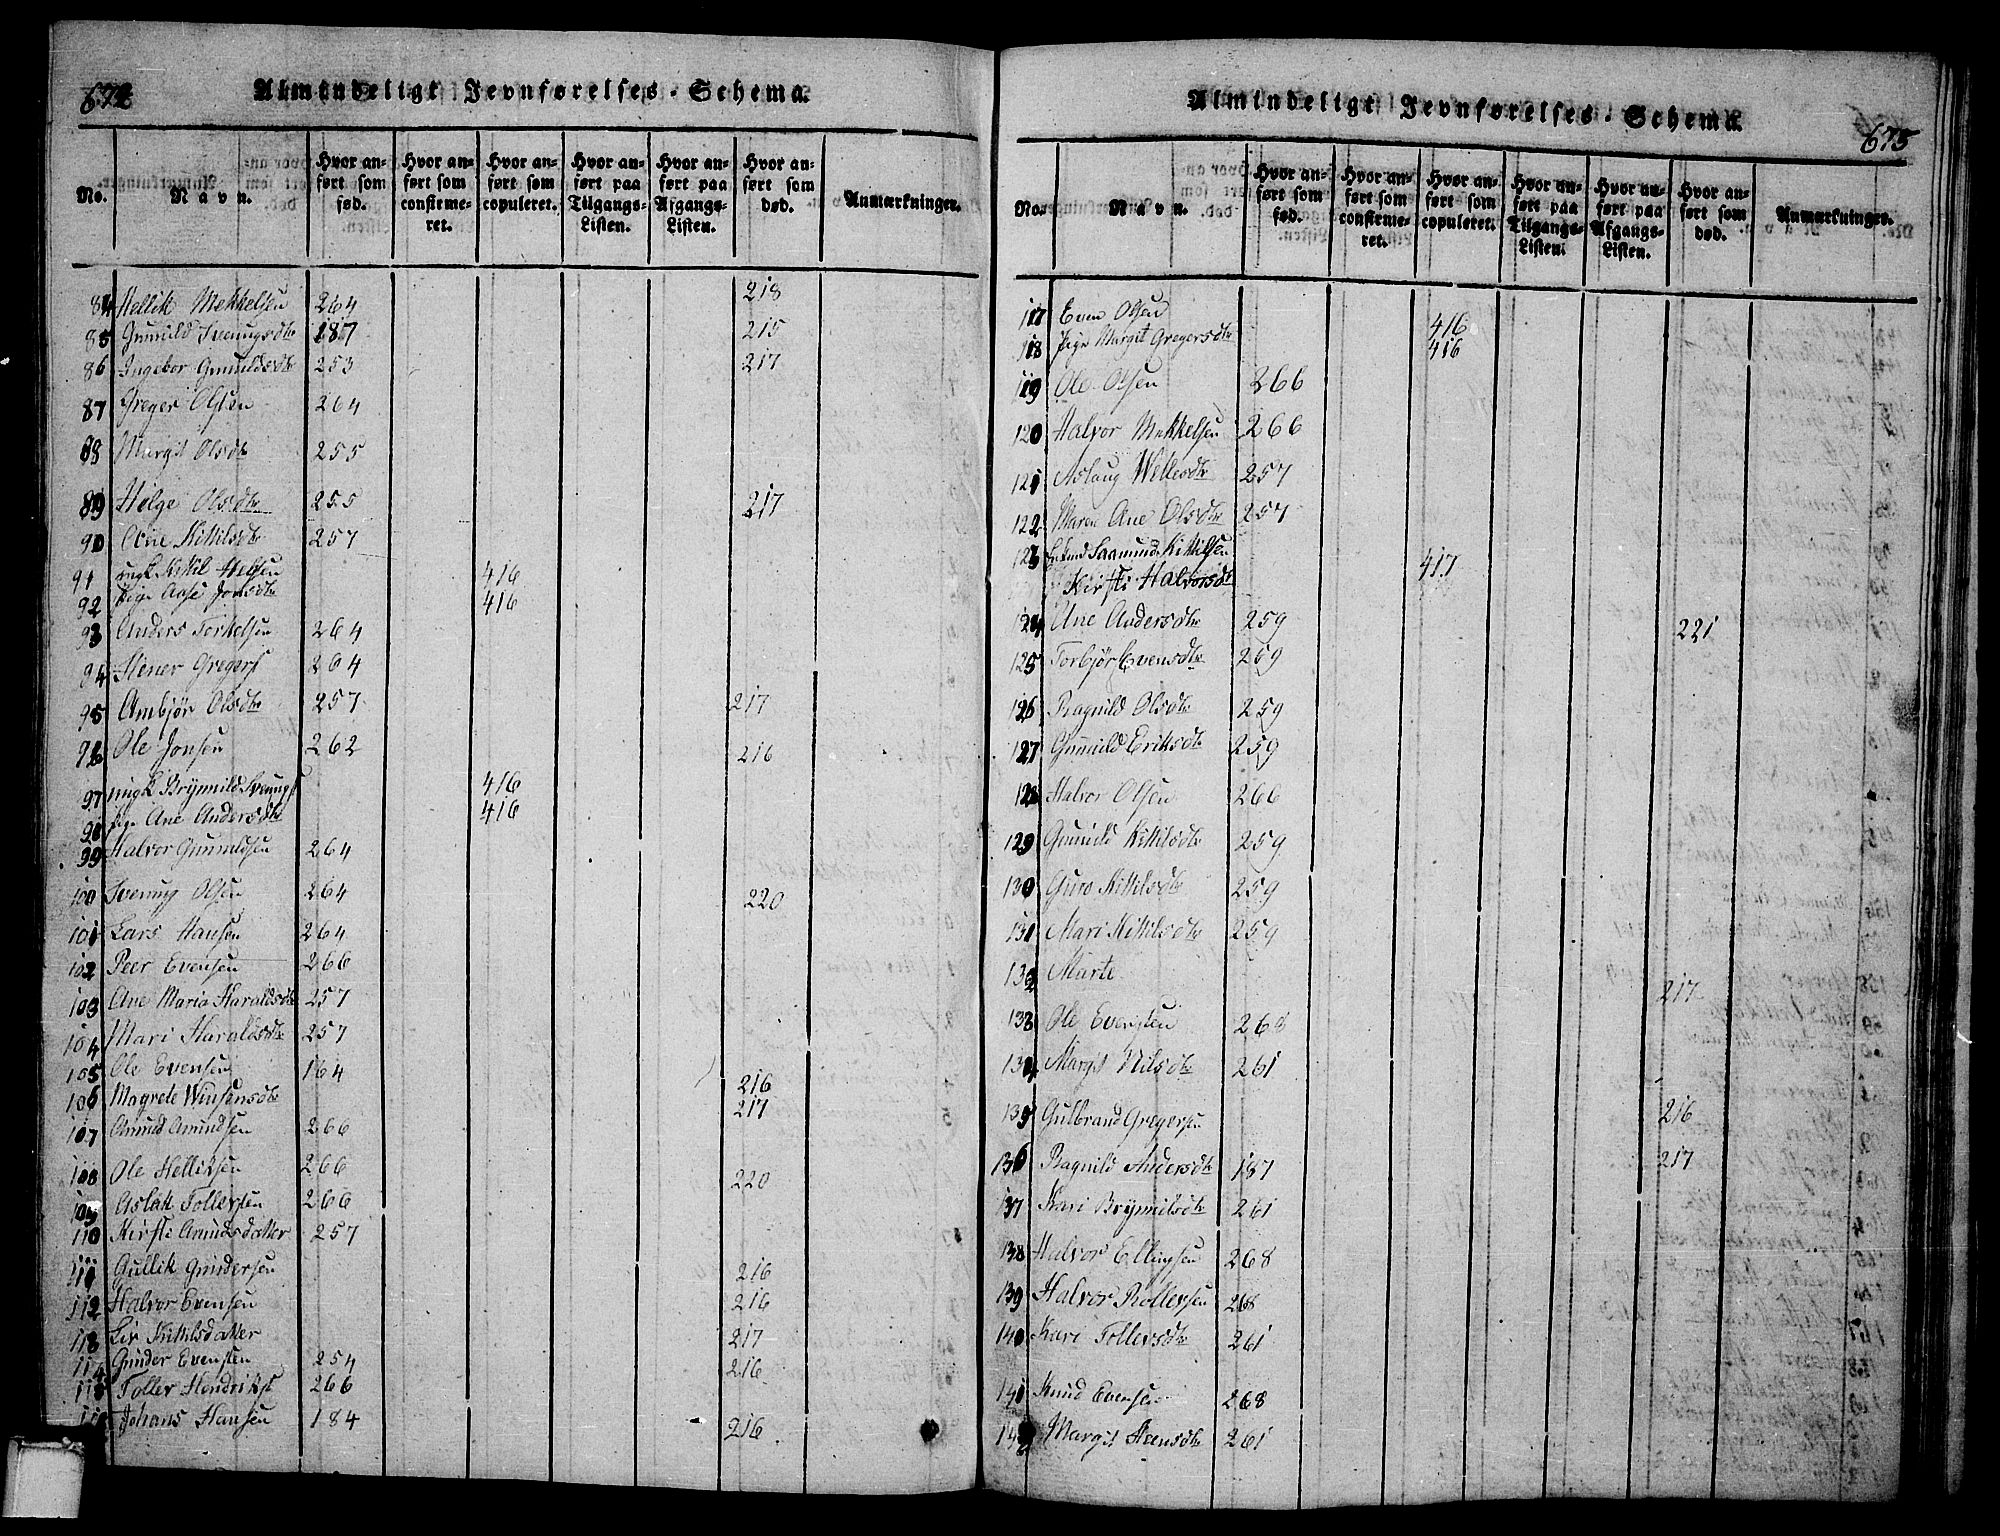 674
Almindeligt Jevnførelses-Schema.
No. Navn. Hvor anført som fød. Hvor anført som confirmeret. Hvor anført som copuleret. Hvor anført paa Tilgangs-Listen. Hvor anført paa Afgangs-Listen. Hvor anført som død. Anmærkninger.
84 Hellik Mekkelsen 264 218
85 Gunnild Svenungsdtr 187 215
86 Ingebor Gunnildsdtr 253 217
87 Greger Olsen 264
88 Margit Olsdtr 255
89 Helge Olsdtr 255 217
90 Kittilsdtr 257
91 ungk. Kittil 416
92 Pige Aase Jonsdtr 416
93 Anders Torkelsen 264
94 Stener Gregers 264
95 Ambjør Olsdtr 257 217
96 Ole Jonsen 262 216
97 ungk Brynnild Svenungs 416
98 Pige Ane Andersdtr 416
99 Halvor Gunnildsen 264
100 Svenung Olsen 264 220
101 Lars Hansen 264
102 Peer Evensen 266
103 Ane Maria Haraldsdtr 257
104 Mari Haraldsdtr 257
105 Ole Evensen 164
106 Magrete 216
217
107 Amund Amundsen 266
108 Ole Helliksen 266 220
109 Aslak Tollefsen 266
110 Kirsti Amundsdatter 257
111 Gullik Gundersen 216
112 Halvor Evensen 216
113 Liv Kittilsdatter 217
114 Gunder Evensen 254 216
115 Toller Hendriks 266
116 Johans Hansen 184 216
675
Almindeligt Jevnførelses-Schema.
No. Navn. Hvor anført som fød. Hvor anført som confirmeret. Hvor anført som copuleret. Hvor anført paa Tilgangs-Listen. Hvor anført paa Afgangs-Listen. Hvor anført som død. Anmærkninger.
117 Even Olsen 416
118 Pige Margit Gregersdtr 416
119 Ole Olsen 266
120 Halvor Mekkelsen 266
121 Aslaug 257
122 Maren Ane Olsdtr 257
123 Saamund Kittilsen 417
Kirsti Halvorsdtr
124 Ane Andersdtr 259 221
125 Torbjør Evensdtr 259
126 Ragnild Olsdtr 259
127 Gunnild Eriksdtr 259
128 Halvor Olsen 266
129 Gunnild Kittilsdtr 259
130 Guro Kittilsdtr 259
131 Mari Kittilsdtr 259
132 Marte 217
133 Ole Evensen 268
134 Margit Nilsdtr 261
135 Gulbrand Gregersen 216
136 Ragnild Andersdtr 187 217
137 Kari Brynnilsdtr 261
138 Halvor Ellingsen 268
139 Halvor Rollefsen 268
140 Kari Tollersdtr 261
141 Knud Evensen 268
142 Margit Steensdtr 261